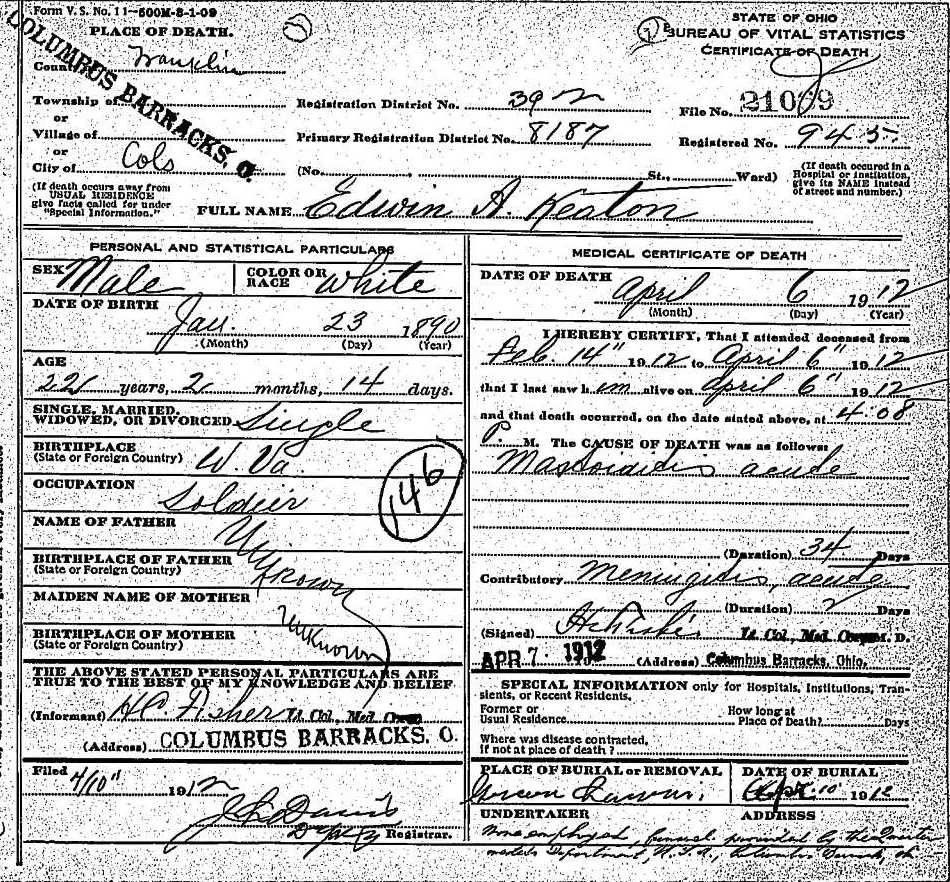 Form V. S. No. 11-500M-8-1-09
PLACE OF DEATH.
STATE OF OHIO
BUREAU OF VITAL STATISTICS
CERTIFICATE OF DEATH
COLUMBUS BARRACKS, O.
County Franklin
Township of
or
Village of
or
City of Cols
Registration District No. 392
File No. 21099
Primary Registration District No. 8187
Registered No. 945
(No. , St., Ward)
(If death occured in a
Hospital or institution,
give its NAME instead
of street and number.)
(If death occurs away from
USUAL RESIDENCE
give facts called for under
"Special Information.")
FULL NAME Edwin A. Keaton
PERSONAL AND STATISTICAL PARTICULARS
SEX Male
COLOR OR
RACE White
DATE OF BIRTH
Jan. 23 1890
(Month) (Day) (Year)
AGE
22 years, 2 months, 14 days.
SINGLE, MARRIED,
WIDOWED, OR DIVORCED Single
BIRTHPLACE
(State or Foreign Country) W. Va.
OCCUPATION
Soldier
146
NAME OF FATHER
Unknown
BIRTHPLACE OF FATHER
(State or Foreign Country)
MAIDEN NAME OF MOTHER
Unknown
BIRTHPLACE OF MOTHER
(State or Foreign Country)
THE ABOVE STATED PERSONAL PARTICULARS ARE
TRUE TO THE BEST OF MY KNOWLEDGE AND BELIEF
(Informant) H.C. Fisher Lt. Col., Med. Corps
(Address) COLUMBUS BARRACKS, O.
Filed
4/10" 1912
Davis
Registrar.
MEDICAL CERTIFICATE OF DEATH
DATE OF DEATH
April 6 1912
(Month) (Day) (Year)
I HEREBY CERTIFY, That I attended deceased from
Feb. 14" 1912 to April 6" 1912
that I last saw him alive on April 6" 1912
and that death occurred, on the date stated above, at 4:08
P. M. The CAUSE OF DEATH was as follows:
Mastoiditis acute
(Duration) 34 Days
Contributory Meningitis, acute
(Duration) 2 Days
(Signed) H.C. Fisher Lt. Col., Med. Corps M. D.
APR 7. 1912 (Address) Columbus Barracks, Ohio.
SPECIAL INFORMATION only for Hospitals, Institutions, Tran-
sients, or Recent Residents.
Former or
Usual Residence
How long at
Place of Death? Days
Where was disease contracted,
if not at place of death?
PLACE OF BURIAL or REMOVAL
Green Lawn.
DATE OF BURIAL
Apr. 10 1912
UNDERTAKER
ADDRESS
None employed, funeral provided by the Quarter
masters Department, U.S.A., Columbus Barracks, Oh